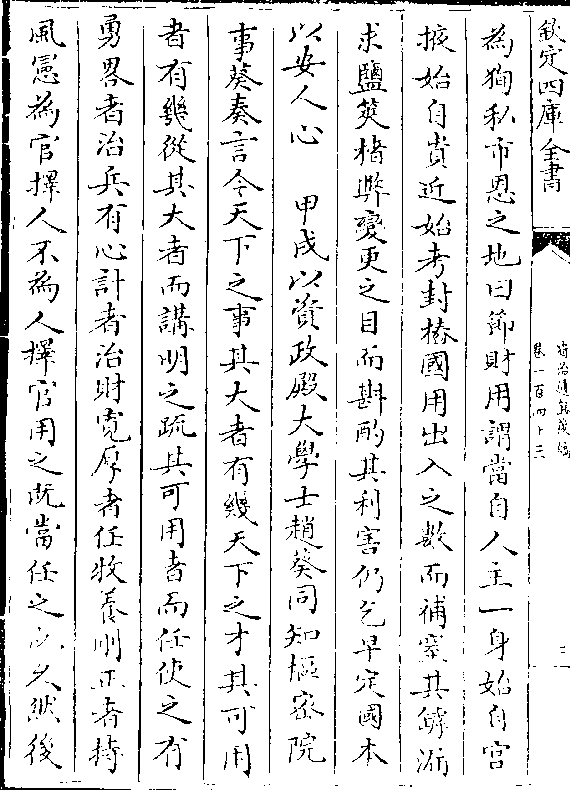 欽定四庫全書
資治通鑑後編
卷一百四十三
為狥私市恩之地曰節財用謂當自人主一身始自宫
掖始自貴近始考封樁國用出入之數而補窒其罅漏
求鹽筴楮弊變更之目而斟酌其利害仍乞早定國本
以安人心 甲戌以資政殿大學士趙葵同知樞密院
事葵奏言今天下之事其大者有幾天下之才其可用
者有幾從其大者而講明之疏其可用者而任使之有
勇畧者治兵有心計者治財寛厚者任牧養剛正者持
風憲為官擇人不為人擇官用之既當任之以久然後